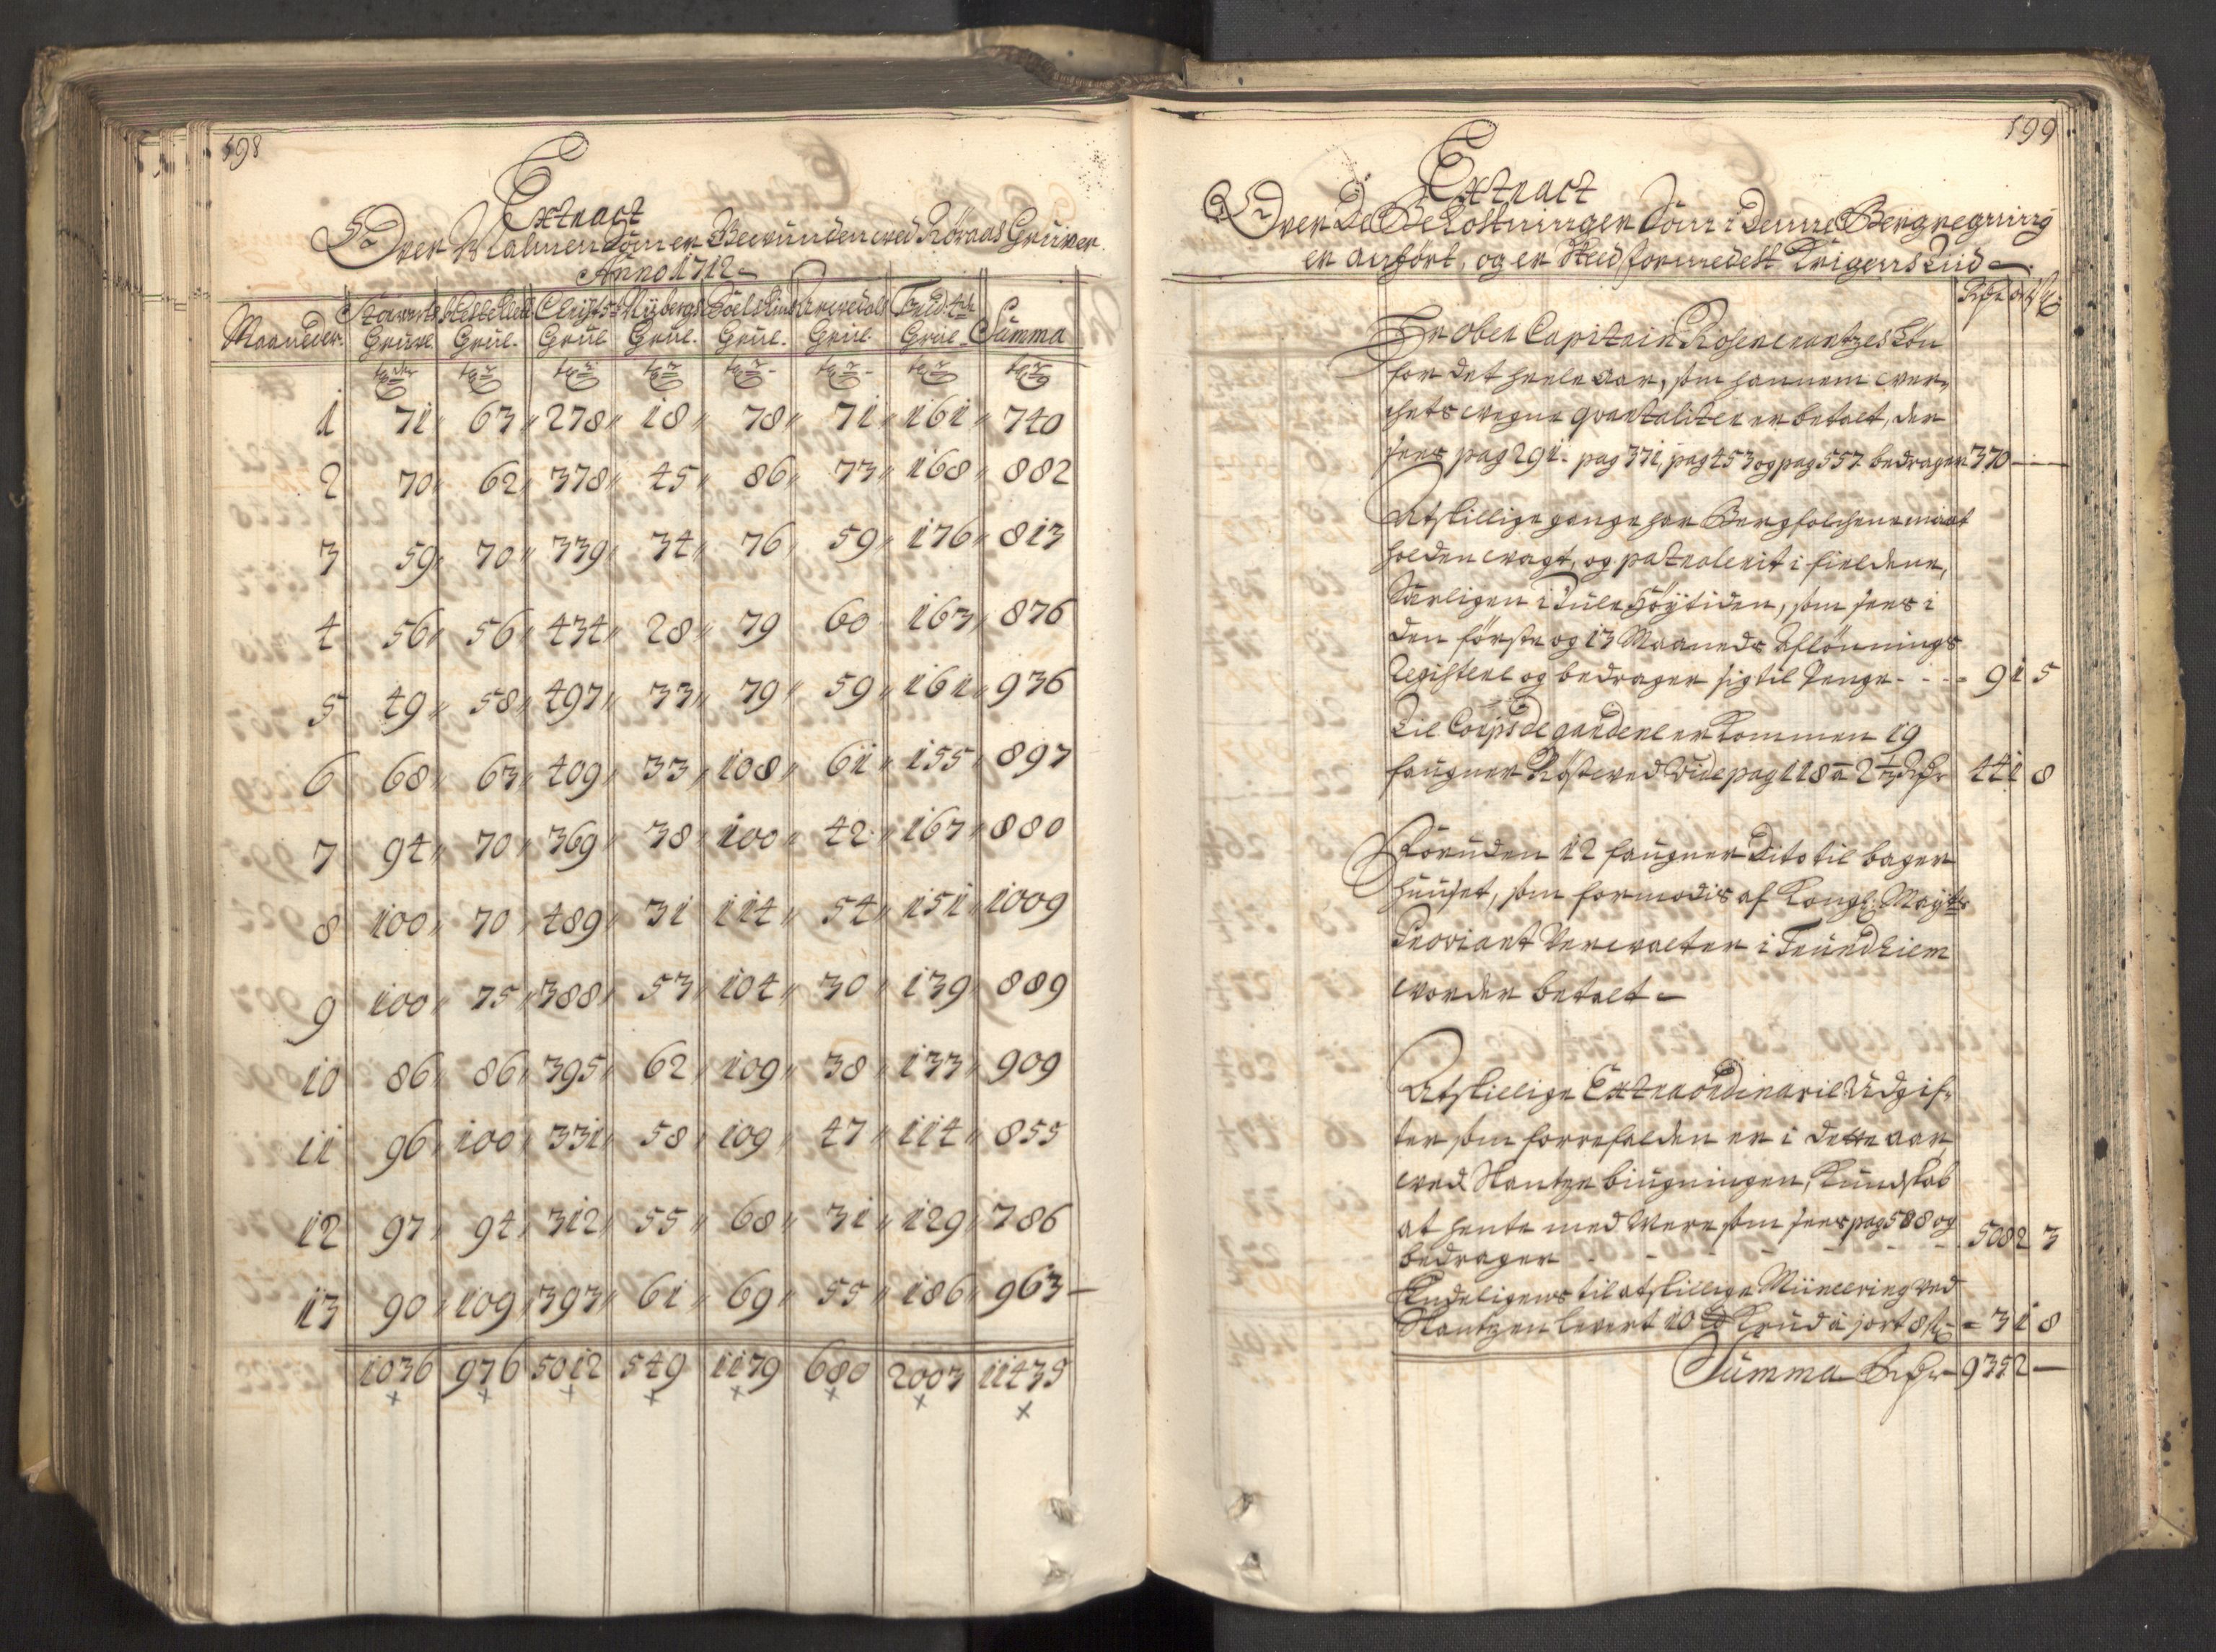 598
Extract
Over Malmen Som er Bewunden wed Röraas Gruver.
Anno 1712
Maaneder. Storwerts Hestklett Christ: Nyberg Arvedals Summa
Gruve. Grub. Grub Grub. Grub. Grub. Grub
1 71 63 278 18 78 71 161 740
2 70 62 378 45 86 73 168 882
3 59 70 339 34 76 59 176 813
4 56 56 434 28 79 60 163 876
5 49 58 497 33 79 59 161 936
6 68 63 409 33 108 61 155 897
7 94 70 369 38 100 42 167 880
8 100 70 489 31 114 54 151 1009
9 100 75 388 53 104 30 139 889
10 86 86 395 62 109 38 133 909
11 96 100 331 58 109 47 114 855
12 97 94 312 55 68 31 129 786
13 90 109 393 61 69 55 186 963
1036 976 5012 549 1179 680 2003 11435
599
Extract
Over De Bekostninger Som i Denne Bergregning
er anfört, og er Skeed formedelst Krigens tiid
Hr Ober Capitain Rosencrantzes Lön
for det heele aar, som hannem wer-
chets wegne qvartaliter er betalt, der
sees pag 291. pag 371, pag 453 og pag 557 bedrager 370
Atskillige gange har Bergfolchene maat
holden wagt, og patrolerit i fieldene,
Særligen i Jule Höytiden, som sees i
den förste og 13 Maaneds Aflönnings
Registere og bedrager sig til Penge - 91 5
Til Corps de gardene er kommen 19
faugner Röstewed Vide pag 118 a 2 1/3 Rdr 44 1 8
Foruden 12 faugner Dito til bager
huuset, som formodis af Kongl: Mayts
Proviant Verwalter i Trundhiem
worder betalt
Atskillige Extraordinarie Udgif-
ter som forrefalden er i dette aar
wed Skantze biugningen, Kundskab
at hente med Mere som sees pag 588 og
bedrager 508 2 3
Endeligen til atskillige Minering wed
Skantzen levert 10 Krud a 8 s - 3 1 8
Summa Rdr 935 2